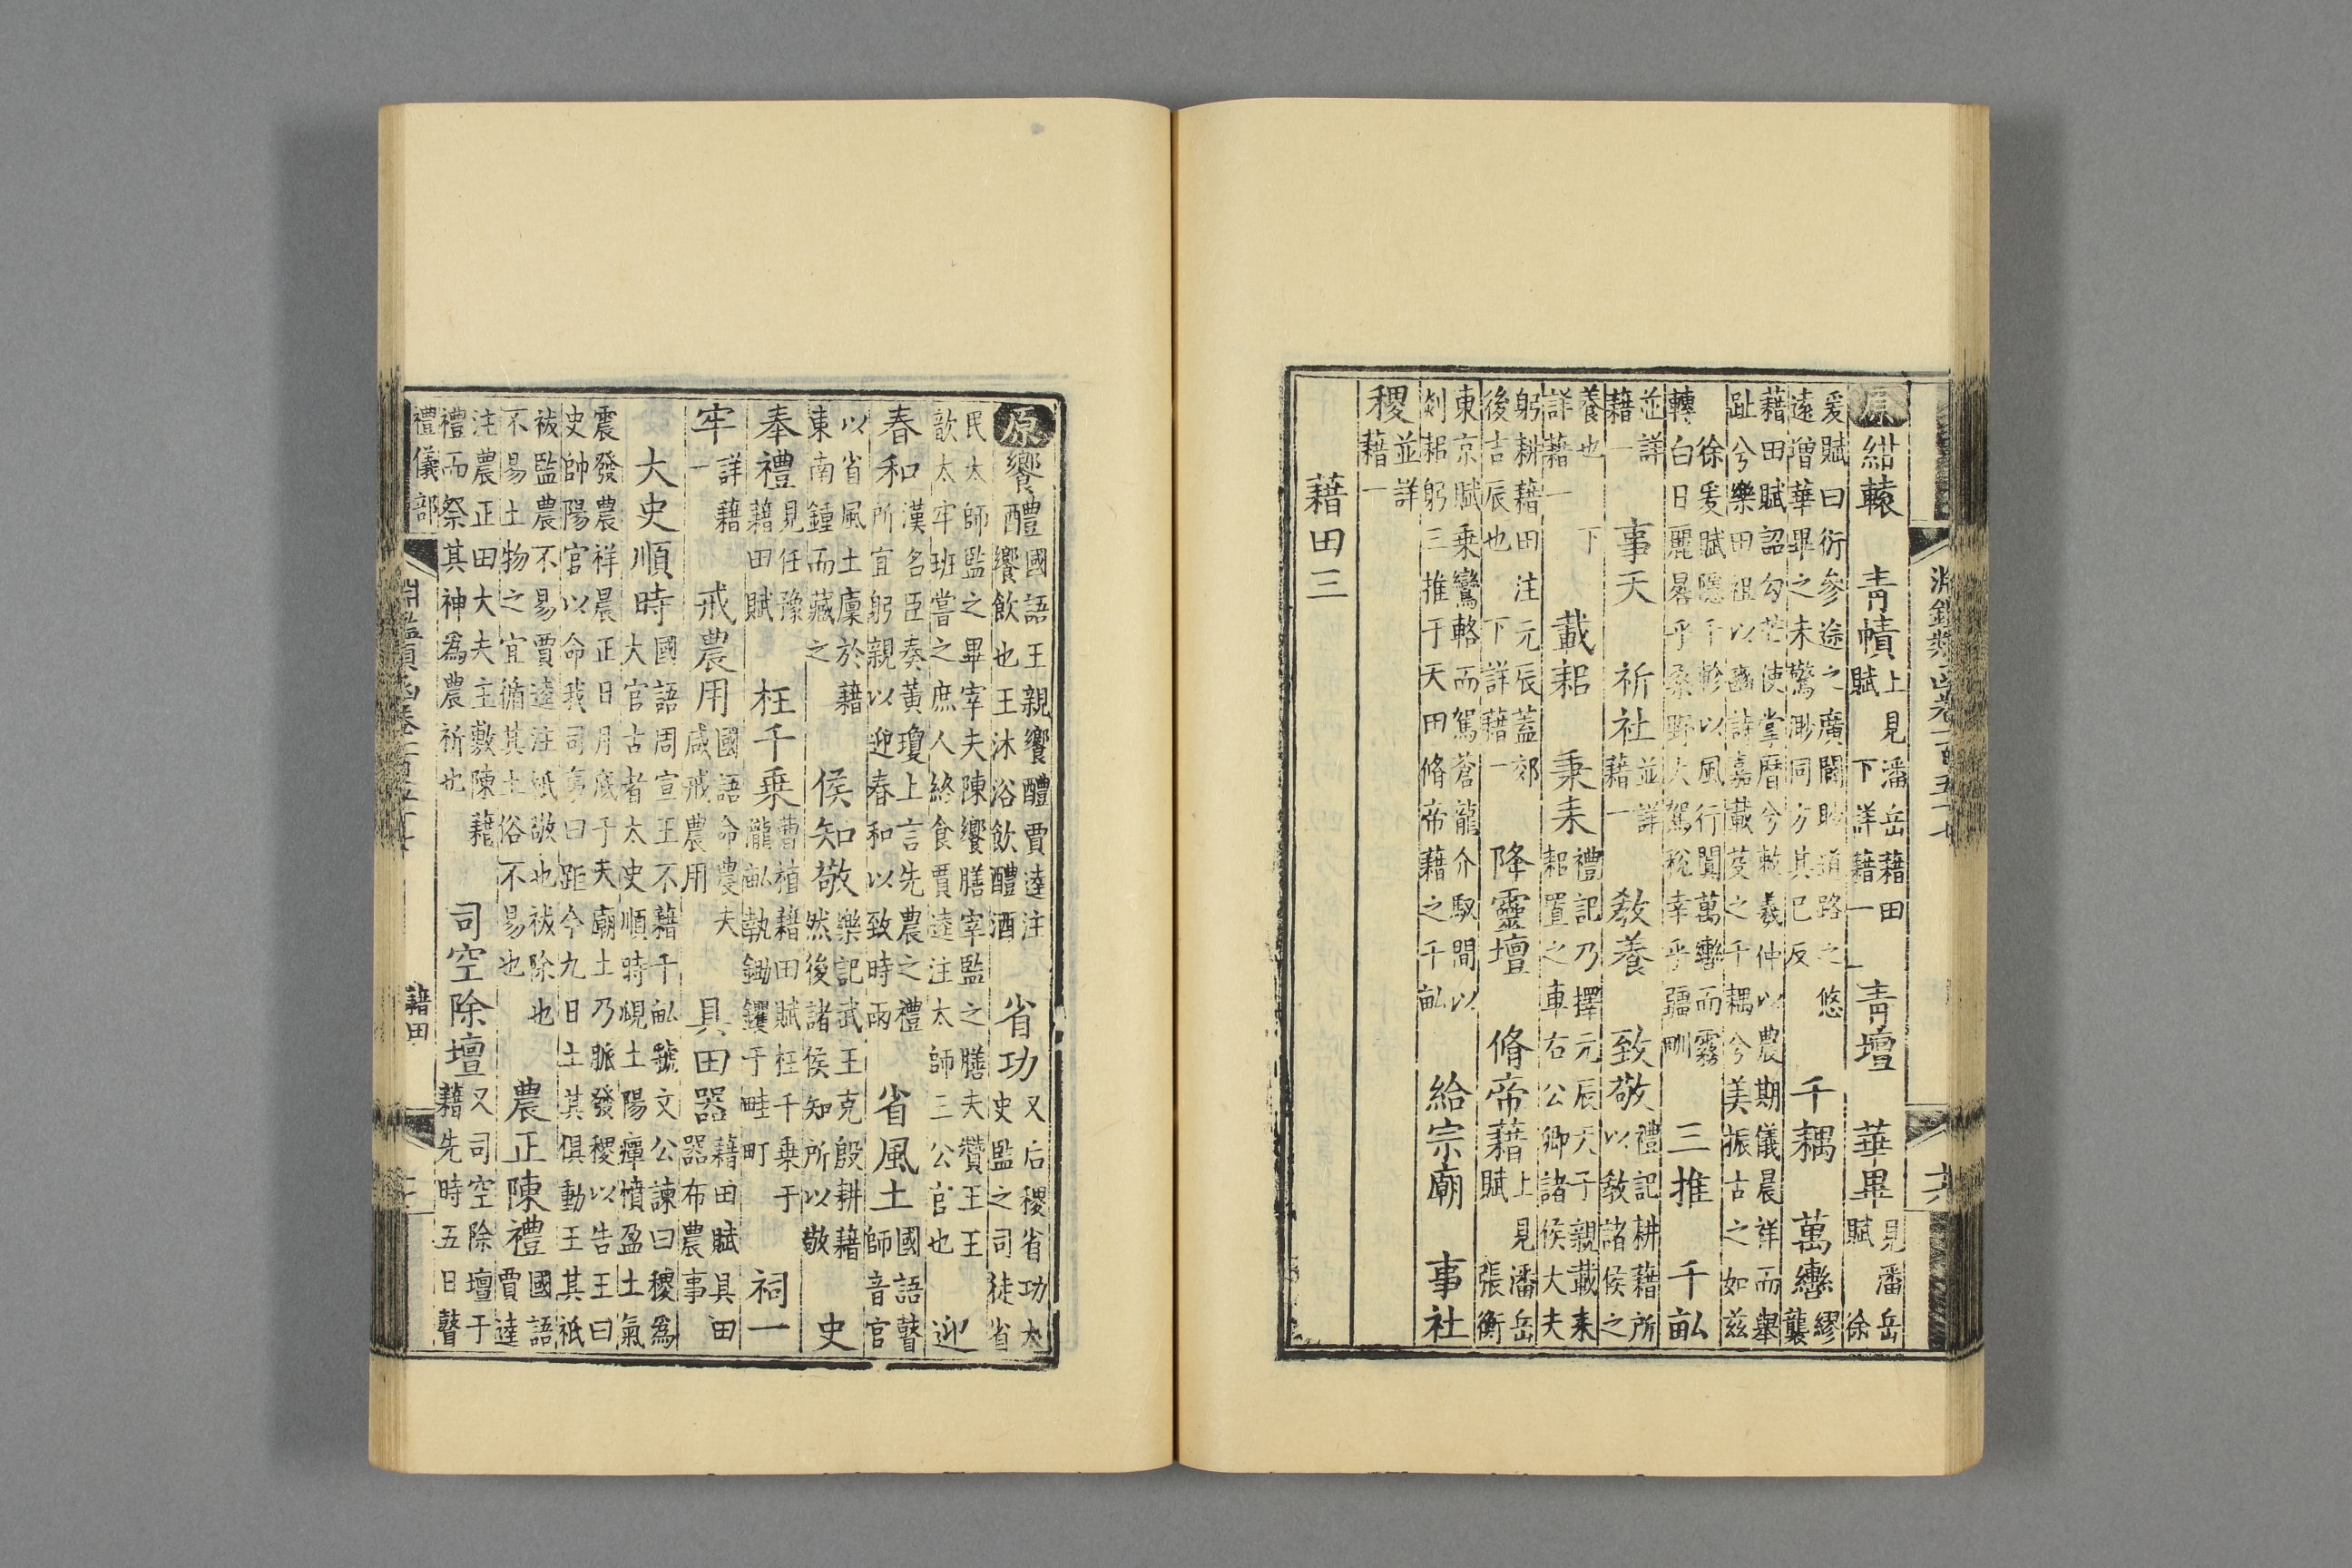 淵鑑類函卷一百五十七
原紺轅 青幘上見潘岳藉田賦下詳藉一 青壇 華畢見潘岳賦 徐
爰賦曰衍參途之廣闢眺通路之悠遠增華畢之未驚渺同方其已反 千耦 萬轡繆襲
藉田賦詔勾芒使掌曆兮敕羲仲以農期儀晨祥而舉趾兮樂田祖以豳詩嘉載芟之千耦兮美振古之如兹
徐爰賦隱千軫以風行聞萬轡而霧轉白日麗晷乎桑野大駕稅幸乎疆甽 三推 千畝
並詳藉一 事天 祈社並詳藉一 教養 致敬禮記耕藉所以教諸侯之
養也下詳藉一 載耜 秉耒禮記乃擇元辰天子親載耒耜置之車右公卿諸侯大夫
躬耕藉田注元辰蓋郊後吉辰也下詳藉一 降靈壇 脩帝藉上見潘岳賦 張衡
東京賦乗鸞輅而駕蒼龍介馭間以剡耜躬三推于天田脩帝藉之千畝 給宗廟 事社
稷並詳藉一
藉田三
原饗醴國語王親饗醴賈逵注饗飲也王沐浴飲醴酒 省功又后稷省功太史監之司徒省
民太師監之畢宰夫陳饗膳宰監之膳夫贊王王歆太牢班嘗之庶人終食賈逵注太師三公官也 迎
春和漢名臣奏黃瓊上言先農之禮所宜躬親以迎春和以致時雨 省風土國語瞽師音官
以省風土廩於藉東南鍾而藏之 侯知敬樂記武王克殷耕藉然後諸侯知所以敬 史
奉禮見任豫藉田賦 枉千乗曹植藉田賦枉千乗于隴畝執鋤钁于畦町 祠一
牢詳藉一 戒農用國語命農夫咸戒農用 具田器藉田賦具田器布農事
大史順時國語周宣王不藉千畝虢文公諫曰稷為大官古者太史順時覛土陽癉憤盈土氣
震發農祥晨正日月底于天廟土乃脈發稷以告王曰史帥陽官以命我司事曰距今九日土其俱動王其祗
祓監農不易賈逵注祗敬也祓除也不易土物之宜循其土俗不易也 農正陳禮國語賈逵
注農正田大夫主敷陳藉禮而祭其神為農祈也 司空除壇又司空除壇于藉先時五日瞽
禮儀部 淵鑑類函卷一百五十七 藉田